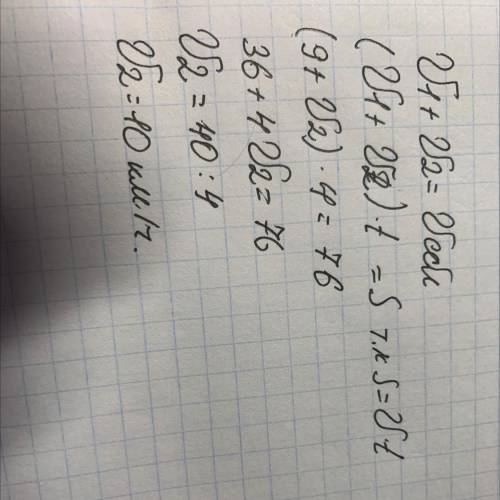 V1 + V2 = Vсбл
(V1 + V2) · t = S т.к S = Vt
(9 + V2) · 4 = 76
36 + 4V2 = 76
V2 = 40 : 4
V2 = 10 км/ч.